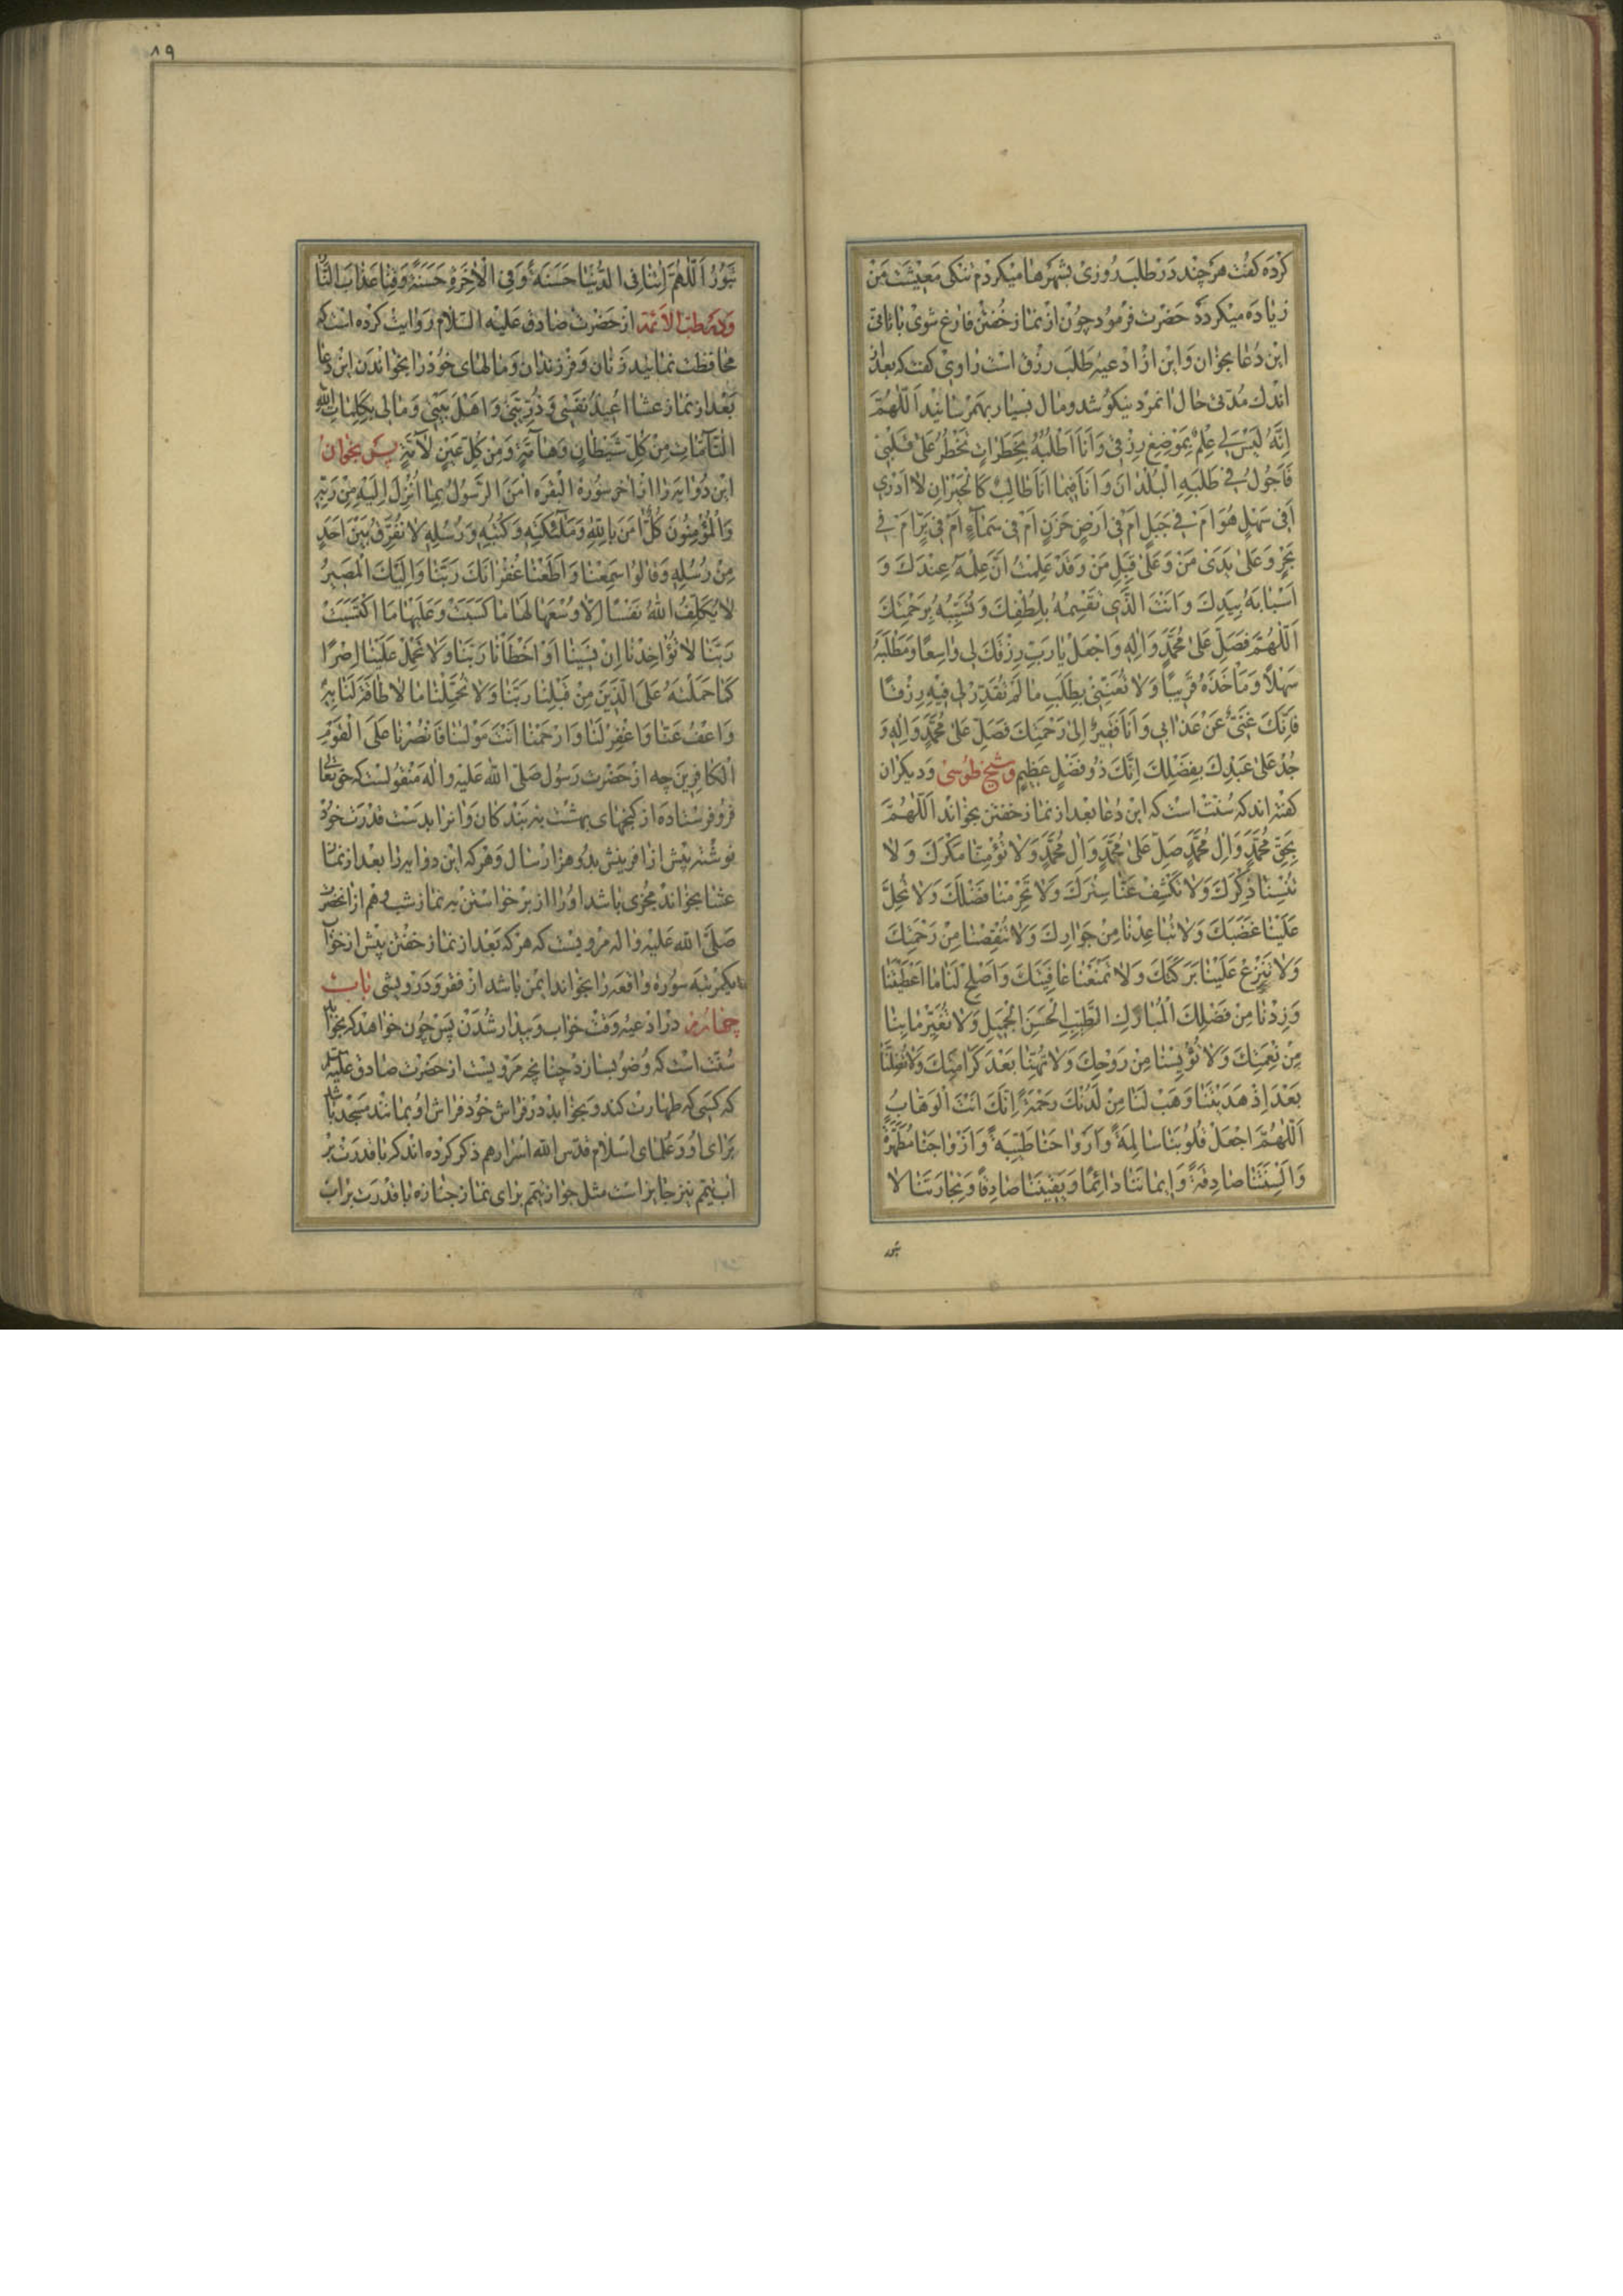 کرده کفت هر چند در طلب روزی بشهرها میکردم تنکی معیشت من
زیاده میکردد حضرت فرمود چون از نماز خفتن فارغ شوی باتانی
این دعا بخوان و این از ادعیه طلب رزق است راوی کفت که بعد از
اندک مدتی حال انمرد نیکو شد و مال بسیار بهم رسانید اَللّهُمَّ
اِنَّهُ لَیْسَ لی عِلْمٌ بِمَوْضِعِ رِزْقی وَاَنَا اَطْلُبُهُ بِخَطَراتٍ تَخْطُرُ عَلیٰ قَلْبی
فَاَجُولُ فی طَلَبِهِ الْبُلْدانَ وَاَنَا فیما اَنَا طالِبٌ کَالْحَیْرانِ لا اَدْری
اَفی سَهْلٍ هُوَ اَمْ فی جَبَلٍ اَمْ فی اَرْضٍ حَزَنٍ اَمْ فی سَماءٍ اَمْ فی بَرٍّ اَمْ فی
بَحْرٍ وَعَلیٰ یَدَیْ مَنْ وَعَلیٰ قِبَلِ مَنْ وَقَدْ عَلِمْتُ اَنَّ عِلْمَهُ عِنْدَکَ وَ
اَسْبابَهُ بِیَدِکَ وَاَنْتَ الَّذی تَقْسِمُهُ بِلُطْفِکَ وَتُسَبِّبُهُ بِرَحْمَتِکَ
اَللّهُمَّ فَصَلِّ عَلیٰ مُحَمَّدٍ وَالِهِ وَاجْعَلْ یا رَبِّ رِزْقَکَ لی واسِعًا وَمَطْلَبَهُ
سَهْلًا وَمَاْخَذَهُ قَریبًا وَلا تُعَنِّنی بِطَلَبِ ما لَمْ تُقَدِّرْ لی فیهِ رِزْقًا
فَاِنَّکَ غَنِیٌّ عَنْ عَذابی وَاَنَا فَقیرٌ اِلیٰ رَحْمَتِکَ فَصَلِّ عَلیٰ مُحَمَّدٍ وَالِهِ وَ
جُدْ عَلیٰ عَبْدِکَ بِفَضْلِکَ اِنَّکَ ذُو فَضْلٍ عَظیمٍ و شیخ طوسی و دیکران
کفته اند که سنت است که این دعا بعد از نماز خفتن بخواند اَللّهُمَّ
بِحَقِّ مُحَمَّدٍ وَالِ مُحَمَّدٍ صَلِّ عَلیٰ مُحَمَّدٍ وَالِ مُحَمَّدٍ وَلا تُؤْمِنّا مَکْرَکَ وَلا
تُنْسِنا ذِکْرَکَ وَلا تَکْشِفْ عَنّا سِتْرَکَ وَلا تَحْرِمْنا فَضْلَکَ وَلا تُحِلَّ
عَلَیْنا غَضَبَکَ وَلا تُباعِدْنا مِنْ جَوارِکَ وَلا تَنْقُصْنا مِنْ رَحْمَتِکَ
وَلا تَنْزِعْ عَلَیْنا بَرَکَتَکَ وَلا تَمْنَعْنا عافِیَتَکَ وَاَصْلِحْ لَنا ما اَعْطَیْتَنا
وَزِدْنا مِنْ فَضْلِکَ الْمُبارَکِ الطَّیِّبِ الْحَسَنِ الْجَمیلِ وَلا تُغَیِّرْ ما بِنا
مِنْ نِعْمَتِکَ وَلا تُؤْیِسْنا مِنْ رَوْحِکَ وَلا تُهِنّا بَعْدَ کَرامَتِکَ وَلا تُضِلَّنا
بَعْدَ اِذْ هَدَیْتَنا وَهَبْ لَنا مِنْ لَدُنْکَ رَحْمَةً اِنَّکَ اَنْتَ الْوَهّابُ
اَللّهُمَّ اجْعَلْ قُلُوبَنا سالِمَةً وَاَرْواحَنا طَیِّبَةً وَاَزْواجَنا مُطَهَّرَةً
وَاَلْسِنَتَنا صادِقَةً وَایمانَنا دائِمًا وَیَقینَنا صادِقًا وَتِجارَتَنا لا
۸۹
تَبُورُ اَللّهُمَّ اتِنا فِی الدُّنْیا حَسَنَةً وَفِی الْاخِرَةِ حَسَنَةً وَقِنا عَذابَ النّارِ
و در طب الائمة از حضرت صادق علیه السلام روایت کرده است که
محافظت نمایید زنان و فرزندان و مالهای خود را بخواندن این دعا
بعد از نماز عشا اُعیذُ نَفْسی وَذُرِّیَّتی وَاَهْلَ بَیْتی وَمالی بِکَلِماتِ اللهِ
التّامّاتِ مِنْ کُلِّ شَیْطانٍ وَهامَّةٍ وَمِنْ کُلِّ عَیْنٍ لامَّةٍ پس بخوان
این دو ایه را از اخر سوره البقره امَنَ الرَّسُولُ بِما اُنْزِلَ اِلَیْهِ مِنْ رَبِّهِ
وَالْمُؤْمِنُونَ کُلٌّ امَنَ بِاللهِ وَمَلٰئِکَتِهِ وَکُتُبِهِ وَرُسُلِهِ لا نُفَرِّقُ بَیْنَ اَحَدٍ
مِنْ رُسُلِهِ وَقالُوا سَمِعْنا وَاَطَعْنا غُفْرانَکَ رَبَّنا وَاِلَیْکَ الْمَصیرُ
لا یُکَلِّفُ اللهُ نَفْسًا اِلّا وُسْعَها لَها ما کَسَبَتْ وَعَلَیْها مَا اکْتَسَبَتْ
رَبَّنا لا تُؤاخِذْنا اِنْ نَسینا اَوْ اَخْطَاْنا رَبَّنا وَلا تَحْمِلْ عَلَیْنا اِصْرًا
کَما حَمَلْتَهُ عَلَی الَّذینَ مِنْ قَبْلِنا رَبَّنا وَلا تُحَمِّلْنا ما لا طاقَةَ لَنا بِهِ
وَاعْفُ عَنّا وَاغْفِرْ لَنا وَارْحَمْنا اَنْتَ مَوْلٰینا فَانْصُرْنا عَلَی الْقَوْمِ
الْکافِرینَ چه از حضرت رسول صلی الله علیه واله منقولست که حق تعالی
فرو فرستاده از کنجهای بهشت به بندکان و انرا بدست قدرت خود
نوشته پیش از افرینش بدو هزار سال و هر که این دو ایه را بعد از نماز
عشا بخواند مجزی باشد او را از برخواستن به نماز شب و هم از انحضرت
صلی الله علیه واله مرویست که هر که بعد از نماز خفتن پیش از خواب
یکمرتبه سوره واقعه را بخواند ایمن باشد از فقر و درویشی باب
چهارم در ادعیه وقت خواب و بیدار شدن پس چون خواهد که بخوابد
سنت است که وضو بسازد چنانچه مرویست از حضرت صادق علیه السلام
که کسی که طهارت کند و بخوابد در فراش خود فراش او بمانند مسجد باشد
برای او و علمای اسلام قدس الله اسرارهم ذکر کرده اند که با قدرت بر
اب تیمم نیز جایز است مثل جواز تیمم برای نماز جنازه با قدرت بر اب